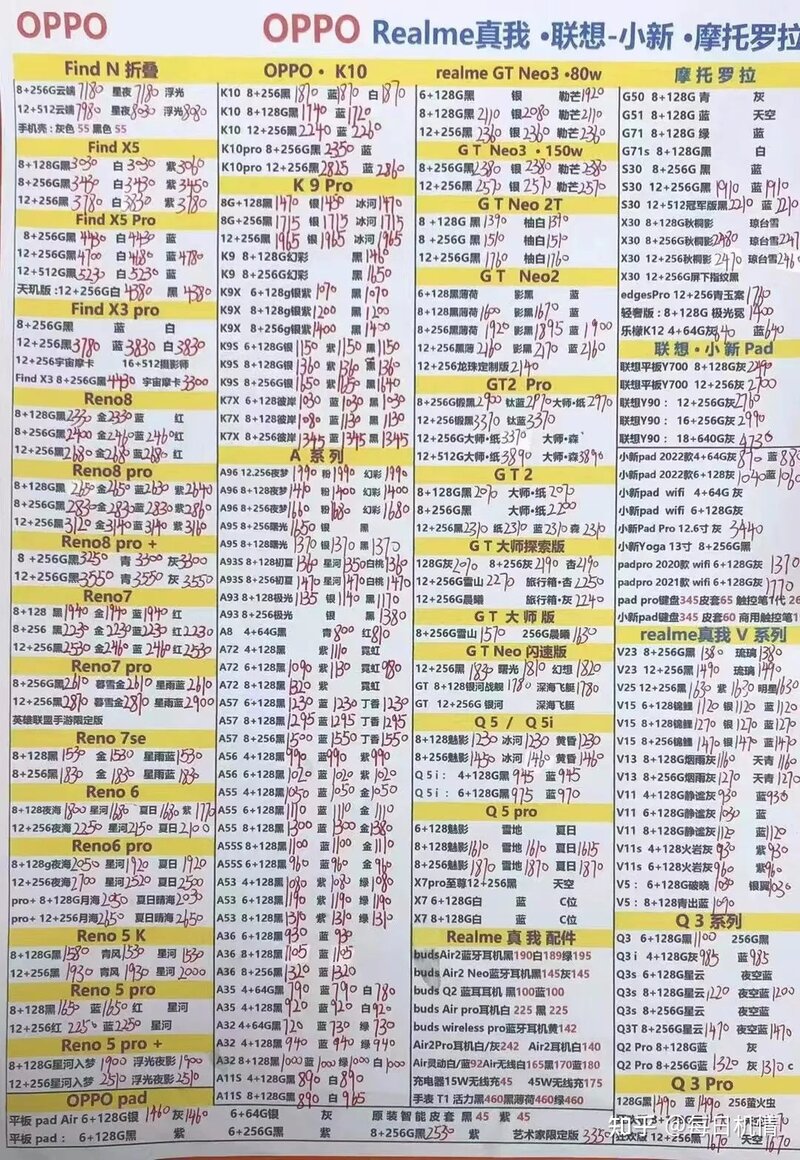 OPPO
OPPO Realme真我·联想-小新·摩托罗拉
Find N 折叠
8+256G云端7180 星夜7180 浮光
12+512G云端7980 星夜8030 浮光8080
手机壳:灰色 55 黑色 55
Find X5
8+128G黑3030 白3030 紫3060
8+256G黑3430 白3430 紫3450
12+256G黑3780 白3830 紫3780
Find X5 Pro
8+256G黑4430 白4430 蓝
12+256G黑4700 白4680 蓝4780
12+512G黑5230 白5230 蓝
天玑版:12+256G白4380 黑4380
Find X3 pro
8+256G黑 蓝 白
12+256G黑3780 蓝3830 白3830
12+256宇宙摩卡 16+512摄影师
Find X3 8+256G黑4430 宇宙摩卡3300
Reno8
8+128G黑2330 金2330 蓝 红
8+256G黑2400 金2460 蓝2460 红
12+256G黑2680 金2680 蓝
Reno8 pro
8+128G黑2650 金2650 蓝2630 紫2640
8+256G黑2830 金2830 蓝2830 紫2860
12+256黑3120 金3140 蓝3140 紫3160
Reno8 pro +
8 +256G黑3250 青3300 灰3300
12+256G黑3550 青3550 灰3550
Reno7
8+128 黑1940 金1940 蓝1940 红
8+256 黑2230 金2230 蓝2230 红2230
12+256黑2530 金2460 蓝2460 红2530
Reno7 pro
8+256G黑2610 暮雪金2610 星雨蓝2610
12+256G黑2870 暮雪金2870 星雨蓝2900
英雄联盟手游限定版
Reno 7se
8+128G黑1530 金1530 星雨蓝1530
8+256G黑1830 金1830 星雨蓝1830
Reno 6
8+128夜海1800 星河1680 夏日1680 紫1770
12+256夜海2250 星河2150 夏日2100
Reno6 pro
8+128g夜海2050 星河1920 夏日1920
12+256夜海2700 星河2520 夏日2500
pro+ 8+128G月海2350 夏日晴海2030
pro+ 12+256月海2650 夏日晴海2650
Reno 5 K
8+128G黑1580 青风1530 星河1530
12+256G黑1930 青风1930 星河2000
Reno 5 pro
8+128G黑1650 蓝1650 红 星河
12+256红2250 蓝2250 星河
Reno 5 pro +
8+128G星河入梦1900 浮光夜影1900
12+256G星河入梦2510 浮光夜影2510
OPPO pad
平板 pad Air 6+128G银1460 灰1460 6+64G银 灰 原装智能皮套 黑45 紫45
平板 pad: 6+128G黑 紫 6+256G黑 紫 8+256G黑2530 紫 艺术家限定版3350
OPPO · K10
K10 8+256G黑1870 蓝1870 白1870
K10 8+128G黑1740 蓝1720
K10 12+256G黑2240 蓝2260
K10pro 8+256G黑2350 蓝
K10pro 12+256G黑2825 蓝2860
K 9 Pro
8G+128G黑1470 银1450 冰河1470
8G+256G黑1715 银1715 冰河1715
12+256G黑1965 银1965 冰河1965
K9 8+128G幻彩 黑1460
K9 8+256G幻彩 黑1650
K9X 6+128g银紫1070 黑1070
K9X 8+128g银紫1200 黑1200
K9X 8+256g银紫1400 黑1400
K9S 6+128G银1150 紫1150 黑1150
K9S 8+128G银1360 紫1360 黑1360
K9S 8+256G银1650 紫1650 黑1640
K7X 6+128彼岸1030 蓝1030 黑1030
K7X 8+128彼岸1080 蓝1130 黑1130
K7X 8+256彼岸1345 蓝1345 黑1345
A 系列
A96 12.256夜梦1990 粉1990 幻彩1990
A96 8+128夜梦1410 粉1400 幻彩1400
A96 8+256夜梦1660 粉1680 幻彩1680
A95 8+256曙光1650 银 黑
A95 8+128曙光1370 银1370 黑1370
A93S 8+128初夏1360 星河1350 白桃1360
A93S 8+256初夏1470 星河1470 白桃1470
A93 8+128极光1135 银1140 黑1170
A93 8+256极光 银 黑1380
A8 4+64G黑 青800 红810
A72 4+128黑 紫1110 霓虹
A72 6+128黑1090 紫1130 霓虹980
A72 8+128黑1320 紫 霓虹
A57 6+128黑1230 蓝1230 丁香1230
A57 8+128黑1295 蓝1295 丁香1295
A57 8+256黑1500 蓝1550 丁香1550
A56 4+128黑990 蓝990 紫990
A56 6+128黑1020 蓝1020 紫1020
A55 4+128黑1050 蓝1050 金1050
A55 6+128黑1110 蓝1110 金1110
A55 8+128黑1300 蓝1300 金1380
A55S 8+128黑1100 蓝1100 金1110
A55S 6+128黑960 蓝960 金960
A53 4+128黑1080 紫1080 绿1080
A53 6+128黑1190 紫1190 绿1190
A53 8+128黑1310 紫1310 绿1310
A36 6+128黑930 蓝930
A36 8+128黑1105 蓝1105
A36 8+256黑1320 蓝1320
A35 4+64G黑790 蓝790 白780
A35 4+128黑920 蓝920 白920
A32 4+64G黑720 蓝730 绿730
A32 4+128黑940 蓝940 绿940
A32 8+128黑1000 蓝1000 绿1000 白1000
A11S 4+128G黑890 白890
A11S 8+128G黑890 白965
realme GT Neo3 ·80w
6+128G黑 银 勒芒1920
8+128G黑2110 银2080 勒芒2110
12+256G黑2360 银2360 勒芒2360
G T Neo3 · 150w
8+256G黑2380 银2380 勒芒2380
12+256G黑2570 银2570 勒芒2570
G T Neo 2T
8+128G 黑1390 柚白1390
8 +256G黑1510 柚白1510
12+256G黑1760 柚白1760
G T Neo2
6+128黑薄荷 影黑 蓝
8+128黑薄荷1600 影黑1670 蓝
8+256黑薄荷1920 影黑1895 蓝1900
12+256黑薄2160 影黑2170 蓝2160
12+256龙珠定制版2140
GT2 Pro
8+256G锻黑2900 钛蓝2870 大师·纸2970
12+256锻黑3370 钛蓝3370
12+256G大师·纸3370 大师·森
12+512G大师·纸3890 大师·森3890
G T 2
8+128G黑2070 大师·纸2070
8+256G黑 大师·纸2200
12+256黑2310 纸2310 蓝2310 森2310
G T 大师探索版
128G灰2070 8+256灰2190 杏2190
12+256G雪山2270 旅行箱·杏2250
12+256G晨曦 旅行箱·灰2240
G T 大师版
8+256G雪山1570 256G晨曦1630
GT Neo 闪速版
12+256黑1830 曙光1810 幻想1820
GT 8+128银河战舰1780 深海飞艇1780
GT 12+256G 银河 深海飞艇
Q 5 / Q 5i
8+128魅影1230 冰河1230 黄昏1230
8+256魅影1450 冰河1460 黄昏1460
Q 5i: 4+128G黑945 蓝945
Q 5i: 6+128G黑975 蓝970
Q 5 pro
6+128魅影 雪地 夏日
8+128魅影1610 雪地1610 夏日1615
8+256魅影1870 雪地1870 夏日1870
X7pro至尊12+256黑 天空
X7 6+128G白 蓝 C位
X7 8+128G白 蓝 C位
Realme 真 我 配件
budsAir2蓝牙耳机黑190白189绿195
budsAir2 Neo蓝牙耳机黑145灰145
buds Q2 蓝耳耳机 黑100蓝100
buds Air pro耳机白 225 黑 225
buds wireless pro蓝牙耳机黄142
Air2Pro耳机白/灰242 Air2耳机白140
Air灵动白/蓝92Air无线白165黑170蓝180
充电器15W无线充45 45W无线充175
手表 T1 活力黑460黑薄荷460绿460
摩托罗拉
G50 8+128G 青 灰
G51 8+128G 蓝 天空
G71 8+128G 绿 蓝
G71s 8+128G黑 白
S30 8+256G 黑 蓝
S30 12+256G黑1910 蓝1910
S30 12+512冠军版黑2210 蓝2210
X30 8+128G秋桐影 琼台雪
X30 8+256G秋桐影2480 琼台雪247
X30 12+256秋桐影2470 琼台雪246
X30 12+256G屏下指纹黑
edgesPro 12+256青玉案1760
轻奢版:8+128G 极光冕1400
乐檬K12 4+64G灰640 蓝640
联想·小新 Pad
联想平板Y700 8+128G灰2490
联想平板Y700 12+256灰2700
联想Y90: 12+256G灰2760
联想Y90: 16+256G灰2990
联想Y90: 18+640G灰4730
小新pad 2022款4+64G灰870 蓝880
小新pad 2022款6+128灰1040 蓝1060
小新pad wifi 4+64G 灰
小新pad wifi 6+128G灰
小新Pad Pro 12.6寸 灰3440
小新Yoga 13寸 8+256G黑
padpro 2020款 wifi 6+128G灰1370
padpro 2021款 wifi 6+128G灰1770
pad pro键盘345皮套65 触控笔1代 26
小新pad键盘345 皮套60 商用触控笔1
realme真我 V 系列
V23 8+256G黑1380 琉璃1380
V23 12+256黑1490 琉璃1490
V25 12+256黑1630 紫1630 明星1630
V15 6+128锦鲤1120 银1120 蓝1120
V15 8+128锦鲤1270 银1270 蓝1270
V15 8+256锦鲤1470 银1470 蓝1470
V13 8+128G烟雨灰1160 天青1160
V13 8+256G烟雨灰1270 天青1270
V11 4+128G静谧灰930 蓝930
V11 6+128G静谧灰1030 蓝
V11 8+128G静谧灰1120 蓝1120
V11s 4+128火岩灰930 紫930
V11s 6+128火岩灰960 紫960
V5: 6+128G破晓1030 银翼1030
V5: 8+128青出蓝1090
Q 3 系列
Q3 6+128G黑1100 256G黑
Q3 i 4+128G灰985 蓝985
Q3s 6+128G星云 夜空蓝
Q3s 8+128G星云1220 夜空蓝1200
Q3s 8+256G星云 夜空蓝
Q3T 8+256G星云1470 夜空蓝1470
Q2 Pro 8+128G灰 蓝
Q2 Pro 8+256G蓝1320 灰1310
Q 3 Pro
128G黑1490 蓝1490 256萤火虫
狂欢版 12+256黑1670 天空1670
知乎 @每日机情